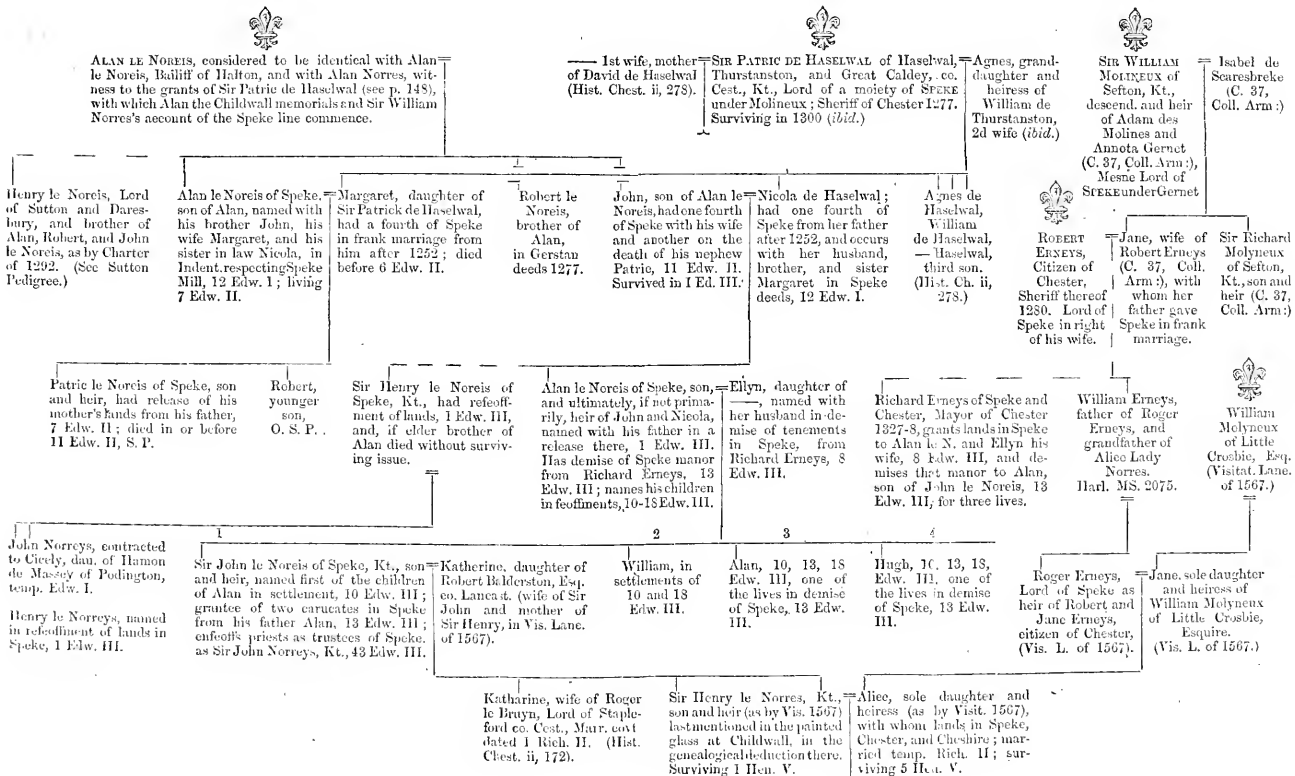 ALAN LE NOREIS, considered to be identical with Alan
le Noreis, Bailiff of Halton, and with Alan Norres, wit-
ness to the grants of Sir Patric de Haselwal (see p. 148),
with which Alan the Childwall memorials and Sir William
Norres's account of the Speke line commence.
—— 1st wife, mother
of David de Haselwal
(Hist. Chest. ii, 278).
SIR PATRIC DE HASELWAL of Haselwal,
Thurstanston, and Great Caldey, co.
Cest., Kt., Lord of a moiety of SPEKE
under Molineux; Sheriff of Chester 1277.
Surviving in 1300 (ibid.)
Agnes, grand-
daughter and
heiress of
William de
Thurstanston,
2d wife (ibid.)
SIR WILLIAM
MOLINEUX of
Sefton, Kt.,
descend. and heir
of Adam des
Molines and
Annota Gernet
(C. 37, Coll. Arm:),
Mesne Lord of
SPEKE under Gernet
Isabel de
Scaresbreke
(C. 37,
Coll. Arm:)
Henry le Noreis, Lord
of Sutton and Dares-
bury, and brother of
Alan, Robert, and John
le Noreis, as by Charter
of 1292. (See Sutton
Pedigree.)
Alan le Noreis of Speke,
son of Alan, named with
his brother John, his
wife Margaret, and his
sister in law Nicola, in
Indent. respecting Speke
Mill, 12 Edw. I; living
7 Edw. II.
Margaret, daughter of
Sir Patrick de Haselwal,
had a fourth of Speke
in frank marriage from
him after 1252; died
before 6 Edw. II.
Robert le
Noreis,
brother of
Alan,
in Gerstan
deeds 1277.
John, son of Alan le
Noreis, had one fourth
of Speke with his wife
and another on the
death of his nephew
Patric, 11 Edw. II.
Survived in 1 Ed. III.
Nicola de Haselwal;
had one fourth of
Speke from her father
after 1252, and occurs
with her husband,
brother, and sister
Margaret in Speke
deeds, 12 Edw. I.
Agnes de
Haselwal,
William
de Haselwal,
— Haselwal,
third son.
(Hist. Ch. ii,
278.)
ROBERT
ERNEYS,
Citizen of
Chester,
Sheriff thereof
1280. Lord of
Speke in right
of his wife.
Jane, wife of
Robert Erneys
(C. 37, Coll.
Arm:), with
whom her
father gave
Speke in frank
marriage.
Sir Richard
Molyneux
of Sefton,
Kt., son and
heir (C. 37,
Coll. Arm:)
Patric le Noreis of Speke, son
and heir, had release of his
mother's lands from his father,
7 Edw. II; died in or before
11 Edw. II, S. P.
Robert,
younger
son,
O. S. P.
Sir Henry le Noreis of
Speke, Kt., had refeoff-
ment of lands, 1 Edw. III,
and, if elder brother of
Alan died without surviv-
ing issue.
Alan le Noreis of Speke, son,
and ultimately, if not prima-
rily, heir of John and Nicola,
named with his father in a
release there, 1 Edw. III.
Has demise of Speke manor
from Richard Erneys, 13
Edw. III; names his children
in feoffments, 10-18 Edw. III.
Ellyn, daughter of
——, named with
her husband in de-
mise of tenements
in Speke, from
Richard Erneys, 8
Edw. III.
Richard Erneys of Speke and
Chester, Mayor of Chester
1327-8, grants lands in Speke
to Alan le N. and Ellyn his
wife, 8 Edw. III, and de-
mises that manor to Alan,
son of John le Noreis, 13
Edw. III, for three lives.
William Erneys,
father of Roger
Erneys, and
grandfather of
Alice Lady
Norres.
Harl. MS. 2075.
William
Molyneux
of Little
Crosbie, Esq.
(Visitat. Lanc.
of 1567.)
1 2 3 4
John Norreys, contracted
to Cicely, dau. of Hamon
de Massey of Podington,
temp. Edw. I.
Henry le Norreys, named
in refeoffment of lands in
Speke, 1 Edw. III.
Sir John le Noreis of Speke, Kt., son
and heir, named first of the children
of Alan in settlement, 10 Edw. III;
grantee of two carucates in Speke
from his father Alan, 13 Edw. III;
enfeoffs priests as trustees of Speke,
as Sir John Norreys, Kt., 43 Edw. III.
Katherine, daughter of
Robert Balderston, Esq.
co. Lancast. (wife of Sir
John and mother of
Sir Henry, in Vis. Lanc.
of 1567).
William, in
settlements of
10 and 18
Edw. III.
Alan, 10, 13, 18
Edw. III, one of
the lives in demise
of Speke, 13 Edw.
III.
Hugh, 10, 13, 18,
Edw. III, one of
the lives in demise
of Speke, 13 Edw.
III.
Roger Erneys,
Lord of Speke as
heir of Robert and
Jane Erneys,
citizen of Chester,
(Vis. L. of 1567).
Jane, sole daughter
and heiress of
William Molyneux
of Little Crosbie,
Esquire.
(Vis. L. of 1567.)
Katharine, wife of Roger
le Bruyn, Lord of Staple-
ford co. Cest., Marr. covt
dated 1 Rich. II. (Hist.
Chest. ii, 172).
Sir Henry le Norres, Kt.,
son and heir (as by Vis. 1567)
last mentioned in the painted
glass at Childwall, in the
genealogical deduction there.
Surviving 1 Hen. V.
Alice, sole daughter and
heiress (as by Visit. 1567),
with whom lands in Speke,
Chester, and Cheshire; mar-
ried temp. Rich. II; sur-
viving 5 Hen. V.